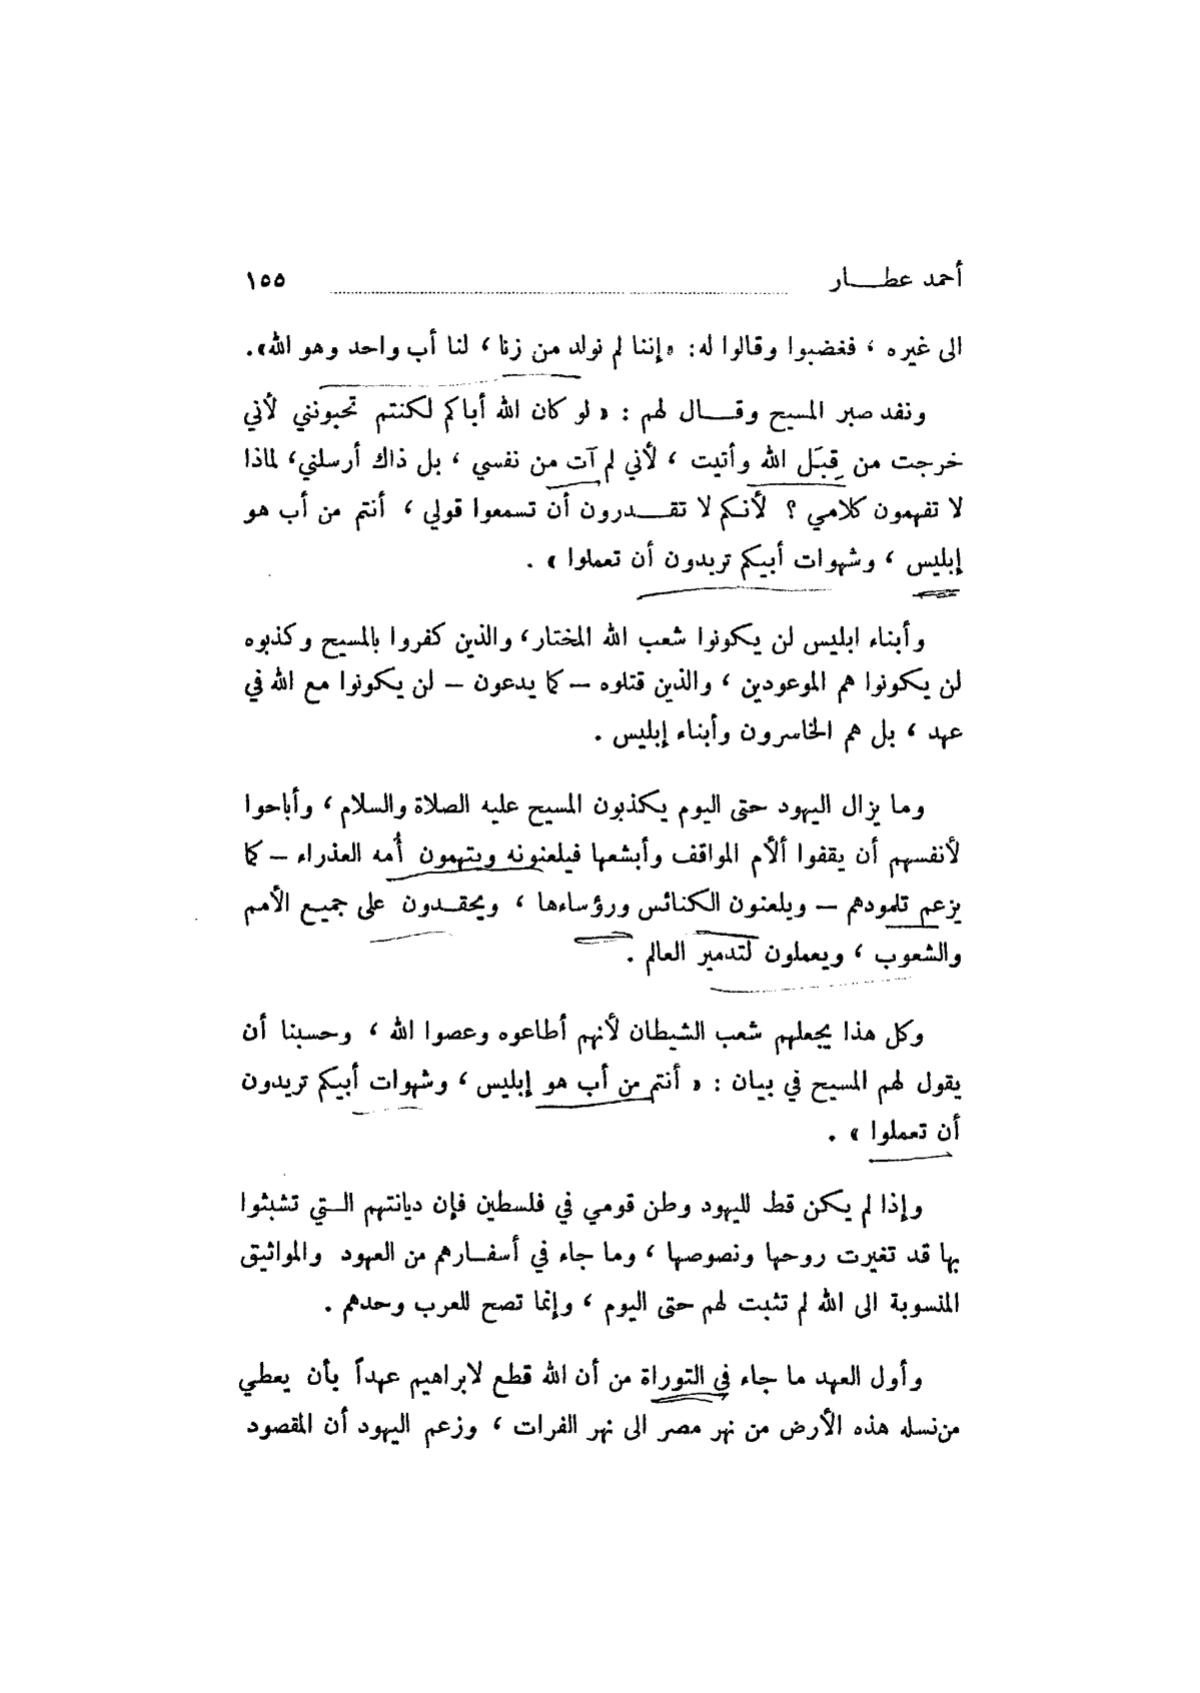 أحمد عطـــار ١٥٥
الى غيره ، فغضبوا وقالوا له: «إننا لم نولد من زنا ، لنا أب واحد وهو الله».
ونفد صبر المسيح وقـــال لهم : « لو كان الله أباكم لكنتم تحبونني لأني
خرجت من قِبَل الله وأتيت ، لأني لم آت من نفسي ، بل ذاك أرسلني، لماذا
لا تفهمون كلامي ؟ لأنكم لا تقـــدرون أن تسمعوا قولي ، أنتم من أب هو
إبليس ، وشهوات أبيكم تريدون أن تعملوا » .
وأبناء ابليس لن يكونوا شعب الله المختار، والذين كفروا بالمسيح وكذبوه
لن يكونوا هم الموعودين ، والذين قتلوه – كما يدعون – لن يكونوا مع الله في
عهد ، بل هم الخاسرون وأبناء إبليس .
وما يزال اليهود حتى اليوم يكذبون المسيح عليه الصلاة والسلام ، وأباحوا
لأنفسهم أن يقفوا ألأم المواقف وأبشعها فيلعنونه ويتهمون أُمه العذراء – كما
يزعم تلمودهم – ويلعنون الكنائس ورؤساءها ، ويحقـدون على جميع الأمم
والشعوب ، ويعملون لتدمير العالم .
وكل هذا يجعلهم شعب الشيطان لأنهم أطاعوه وعصوا الله ، وحسبنا أن
يقول لهم المسيح في بيان : « أنتم من أب هو إبليس ، وشهوات أبيكم تريدون
أن تعملوا » .
وإذا لم يكن قط لليهود وطن قومي في فلسطين فإن ديانتهم الـتي تشبثوا
بها قد تغيرت روحها ونصوصها ، وما جاء في أسفـارهم من العهود والمواثيق
المنسوبة الى الله لم تثبت لهم حتى اليوم ، وإنما تصح للعرب وحدهم .
وأول العهد ما جاء في التوراة من أن الله قطع لابراهيم عهداً بأن يعطي
من نسله هذه الأرض من نهر مصر الى نهر الفرات ، وزعم اليهود أن المقصود